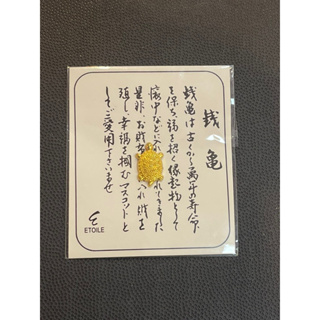 銭亀
銭亀は古くから萬年の寿命
を保ち福を招く縁起物として
懐中などに入れ
是非、お財布に入れ銭を
殖し、幸福を掴むマスコットと
してご愛用下さいませ
ETOILE